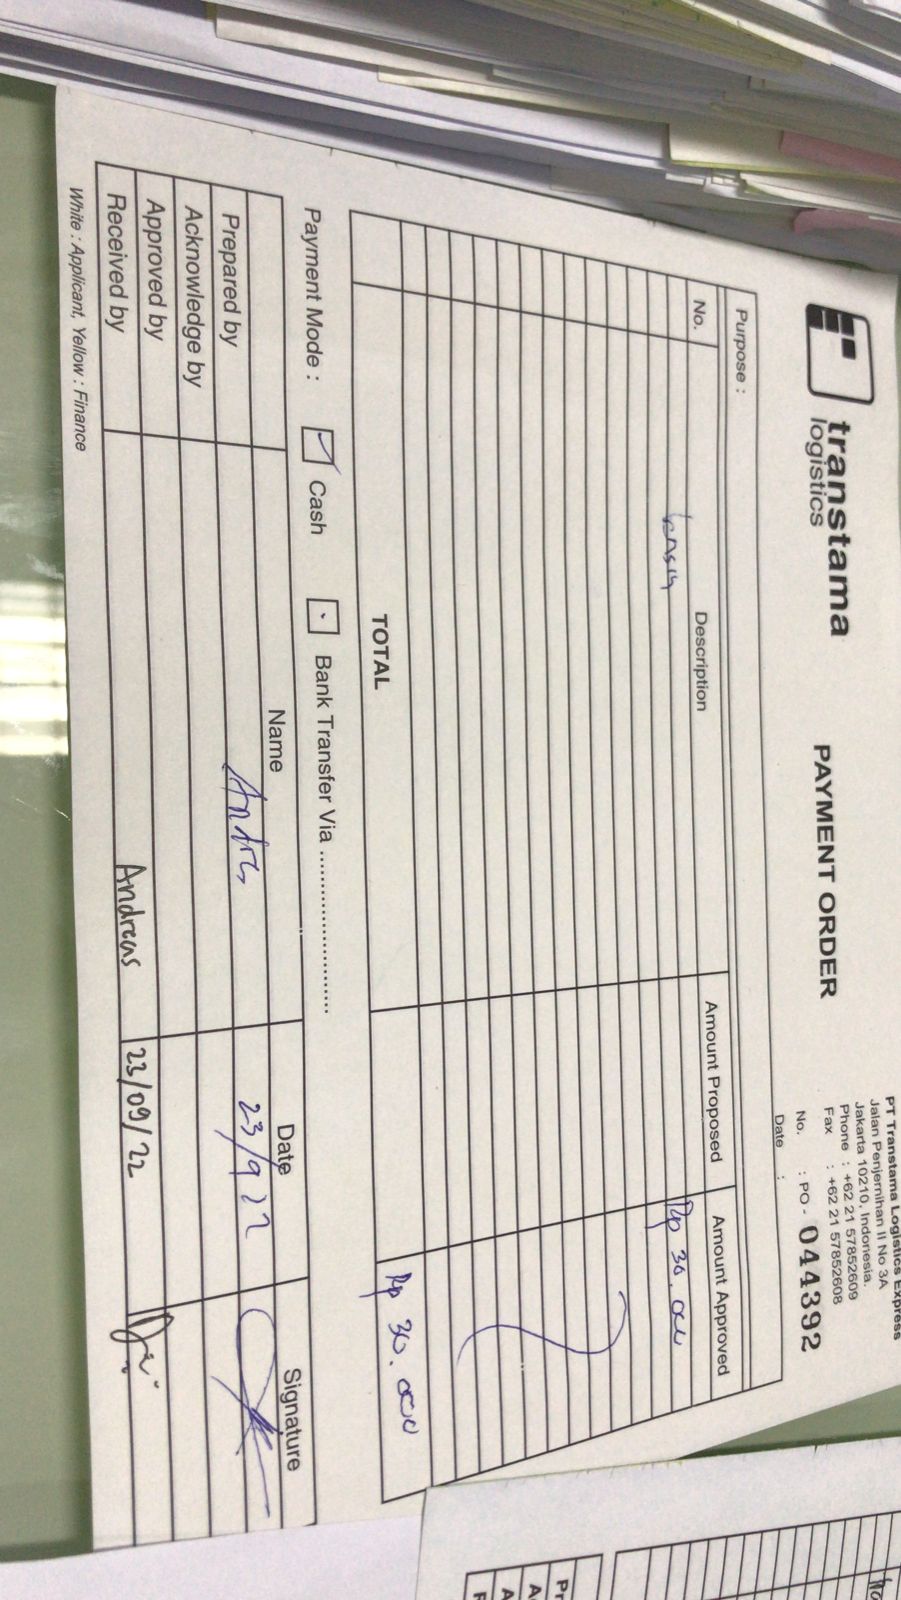 transtama
logistics
PAYMENT ORDER
PT Transtama Logistics Express
Jalan Penjernihan II No 3A
Jakarta 10210, Indonesia.
Phone : +62 21 57852609
Fax : +62 21 57852608
No. : PO - 044392
Date :
Purpose :
No. Description Amount Proposed Amount Approved
Rp 30.000
TOTAL Rp 30.000
Payment Mode : Cash Bank Transfer Via ......................
Name Date Signature
Prepared by 23/9/22
Acknowledge by
Approved by
Received by Andreas 23/09/22
White : Applicant, Yellow : Finance